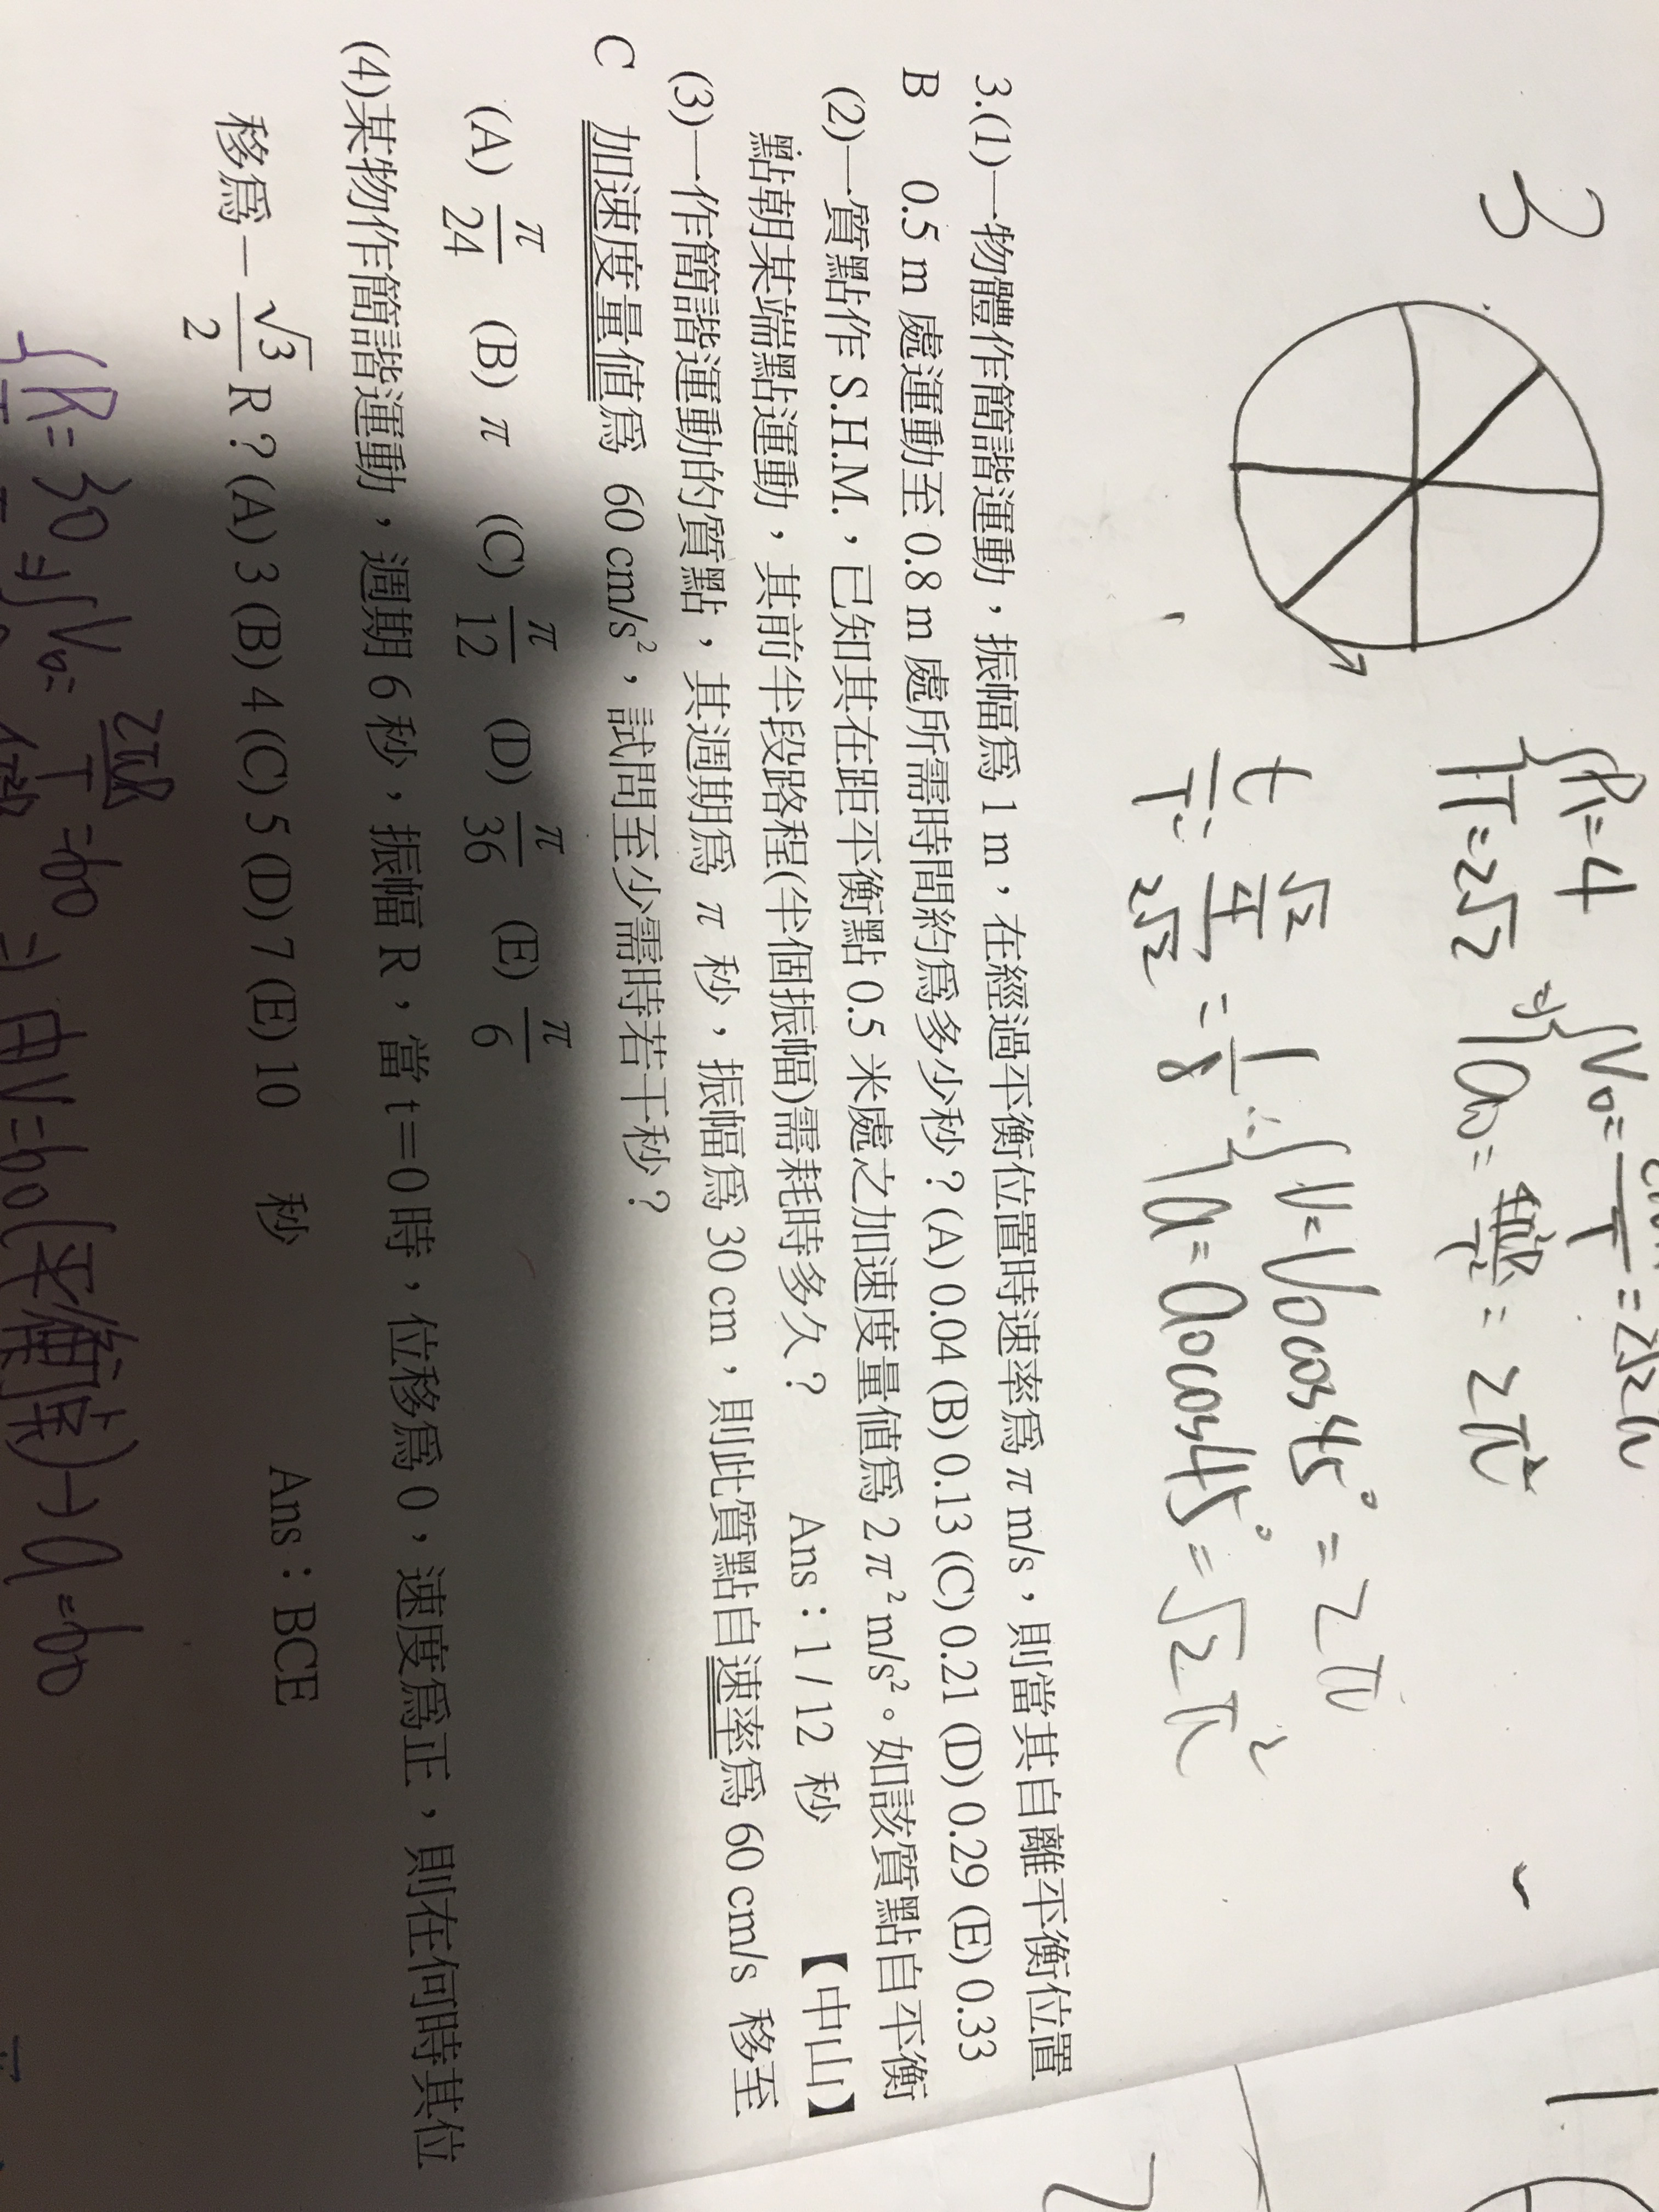 3
R=4
T=2√2
V₀=
=2√2π
a₀=
=2π²
t/T=(√2/4)/(2√2)=1/8
∴ V=V₀cos45°=2π
a=a₀cos45°=√2π²
3.(1)一物體作簡諧運動，振幅為 1 m，在經過平衡位置時速率為 π m/s，則當其自離平衡位置
B 0.5 m 處運動至 0.8 m 處所需時間約為多少秒？(A) 0.04 (B) 0.13 (C) 0.21 (D) 0.29 (E) 0.33
(2)一質點作 S.H.M.，已知其在距平衡點 0.5 米處之加速度量值為 2 π² m/s²。如該質點自平衡
點朝某端點運動，其前半段路程(半個振幅)需耗時多久？ Ans：1 / 12 秒 【中山】
(3)一作簡諧運動的質點，其週期為 π 秒，振幅為 30 cm，則此質點自速率為 60 cm/s 移至
C 加速度量值為 60 cm/s²，試問至少需時若干秒？
(A) π/24 (B) π (C) π/12 (D) π/36 (E) π/6
(4)某物作簡諧運動，週期 6 秒，振幅 R，當 t＝0 時，位移為 0，速度為正，則在何時其位
移為－√3/2 R？(A) 3 (B) 4 (C) 5 (D) 7 (E) 10 秒 Ans：BCE
R=30
V₀=2πR/T=60
由V=60(平衡點)→a=60